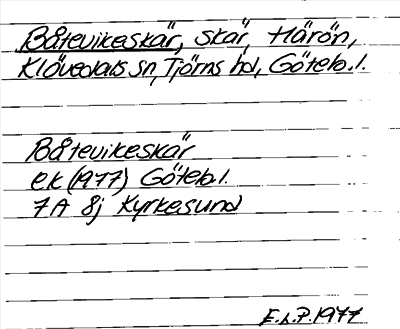 Båtevikeskär, skär, Härön,
Klövedals sn, Tjörns hd, Göteb. l.
Båtevikeskär
ek (1977) Göteb. l.
7A 8j Kyrkesund
E.L.P. 1977